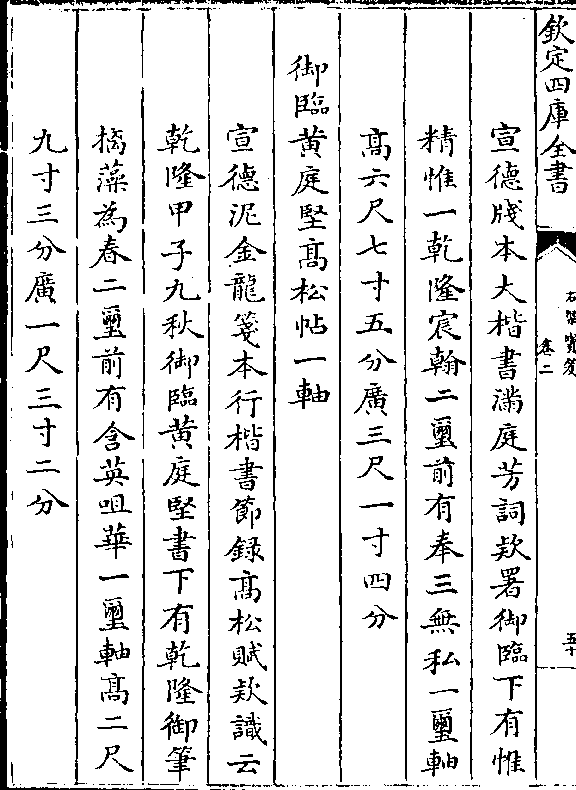 欽定四庫全書
石渠寶笈
卷二
五十
宣德牋本大楷書滿庭芳詞欵署御臨下有惟
精惟一乾隆宸翰二璽前有奉三無私一璽軸
髙六尺七寸五分廣三尺一寸四分
御臨黄庭堅髙松帖一軸
宣德泥金龍箋本行楷書節録髙松賦欵識云
乾隆甲子九秋御臨黄庭堅書下有乾隆御筆
摛藻為春二璽前有含英咀華一璽軸髙二尺
九寸三分廣一尺三寸二分